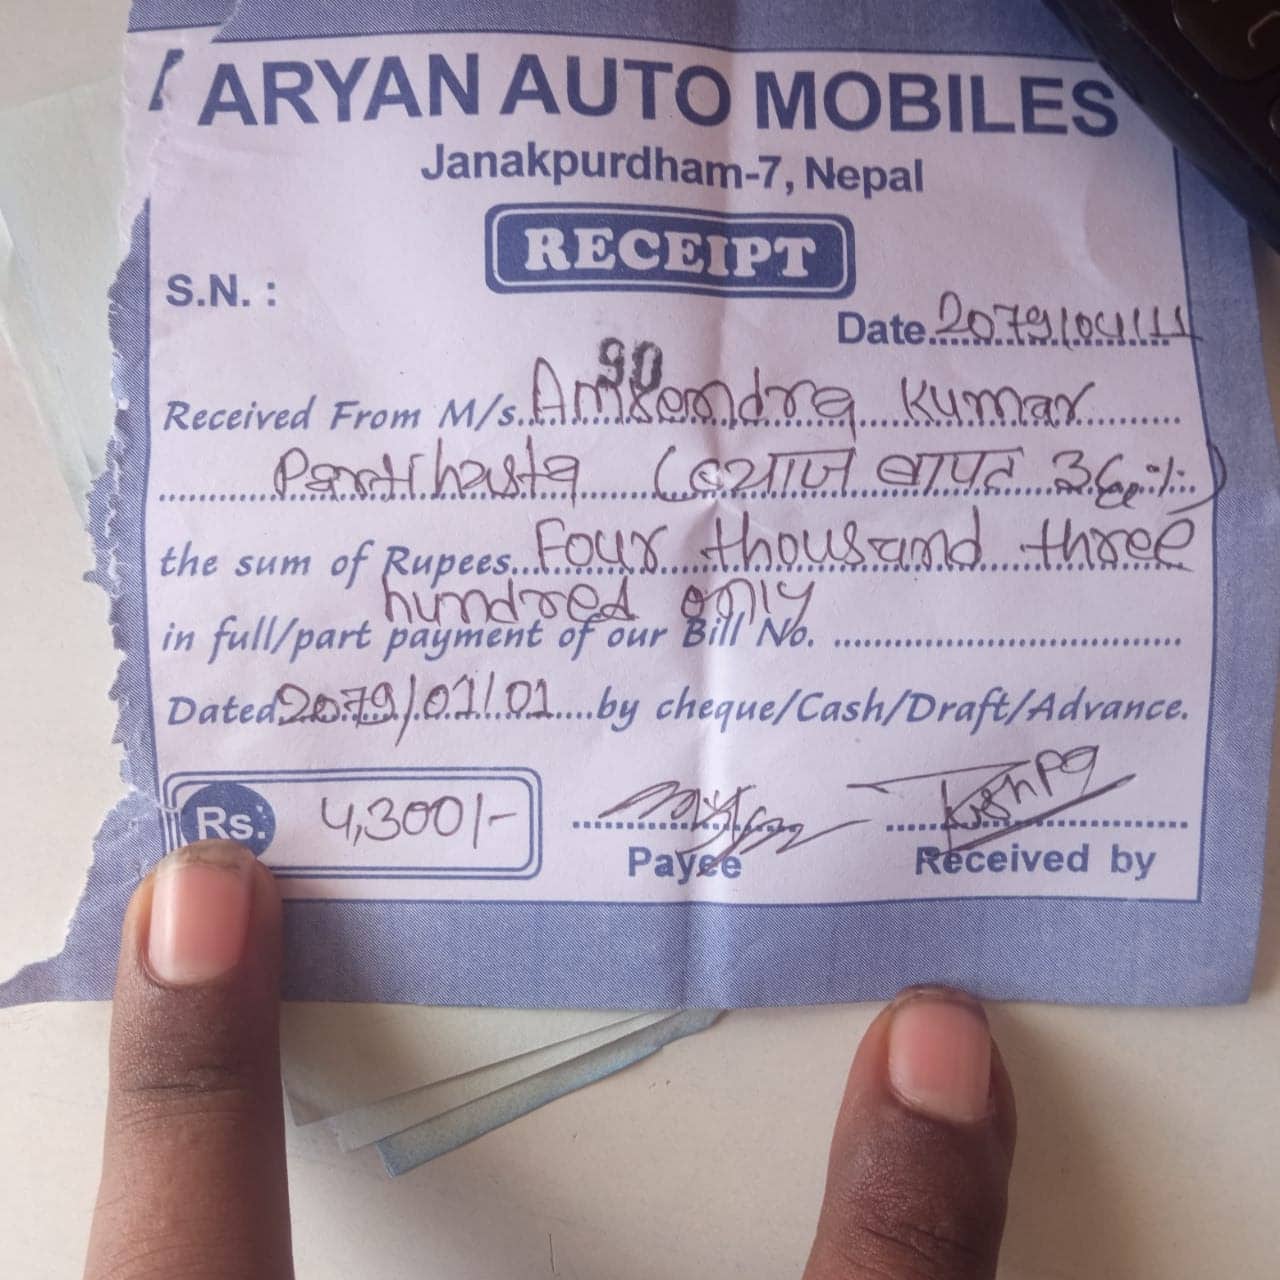 ARYAN AUTO MOBILES
Janakpurdham-7, Nepal
RECEIPT
S.N. :
90
Date 2079/04/11
Received From M/s. Kumar
(व्याज बापत 36%)
the sum of Rupees Four thousand three
hundred only
in full/part payment of our Bill No.
Dated 2079/01/01 by cheque/Cash/Draft/Advance.
Rs. 4,300/-
Payee
Received by